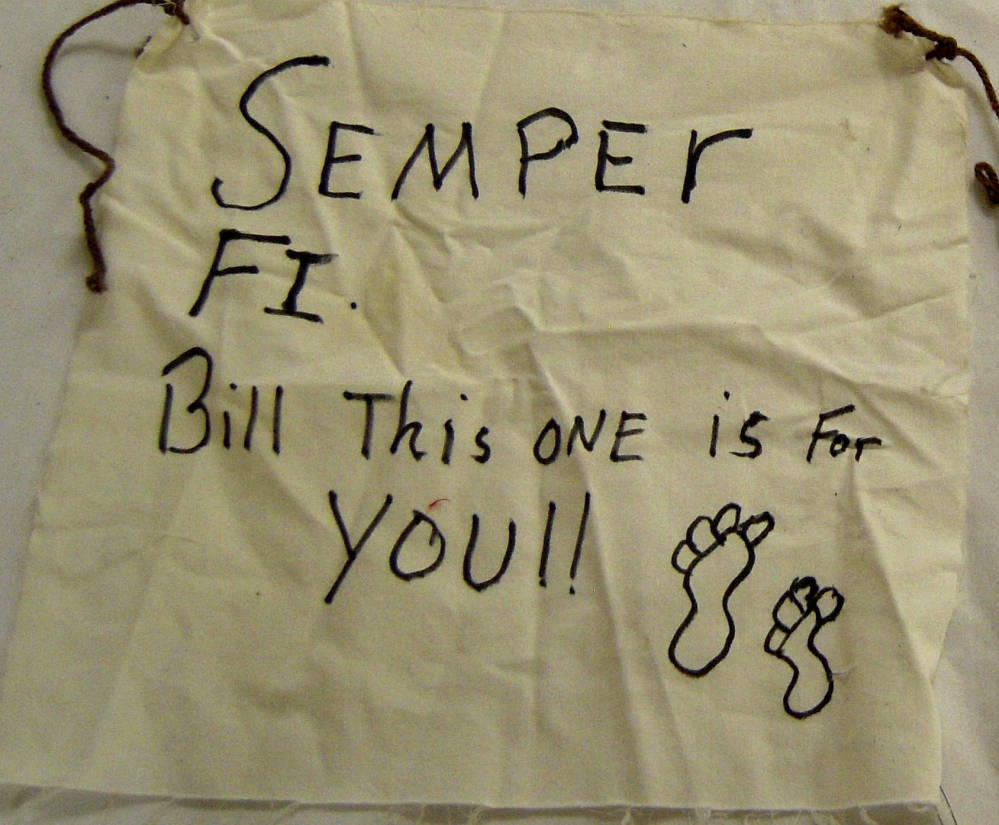 SEMPEr
FI.
Bill This ONE is For
YOU!!